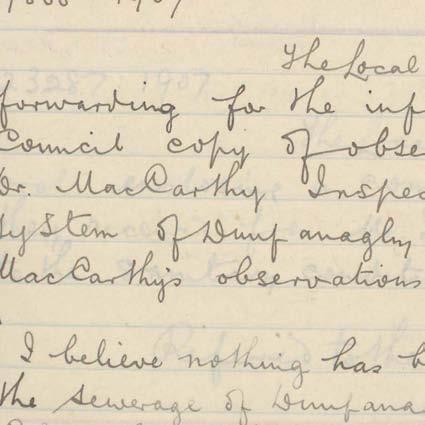 1907
The Local
forwarding for the inf
Council copy of obse
Dr. MacCarthy Inspec
System of Dunfanaghy
MacCarthy's observations
I believe nothing has b
the sewerage of Dunfana